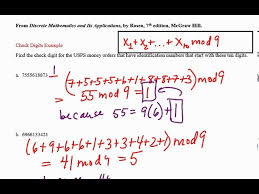 From Discrete Mathematics and Its Applications, by Rosen, 7th edition, McGraw Hill.
Check Digits Example
X₁+X₂+...+X₁₀ mod 9
Find the check digit for the USPS money orders that have identification numbers that start with these ten digits.
a. 7555618873
1
(7+5+5+5+6+1+8+8+7+3) mod 9
= 55 mod 9 = 1
because 55 = 9(6) + 1
b. 6966133421
(6+9+6+6+1+3+3+4+2+1) mod 9
= 41 mod 9 = 5